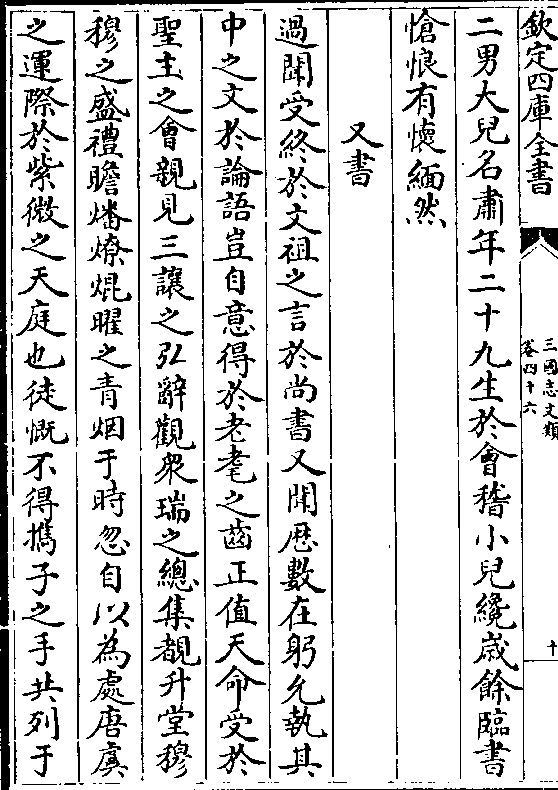 欽定四庫全書
三國志文類
卷四十六
十
二男大兒名肅年二十九生於會稽小兒纔歳餘臨書
愴悢有懷緬然
又書
過聞受終於文祖之言於尚書又聞厯數在躬允執其
中之文於論語豈自意得於老耄之齒正值天命受於
聖主之會親見三讓之弘辭觀衆瑞之總集覩升堂穆
穆之盛禮瞻燔燎焜曜之青烟于時忽自以為處唐虞
之運際於紫微之天庭也徒慨不得攜子之手共列于